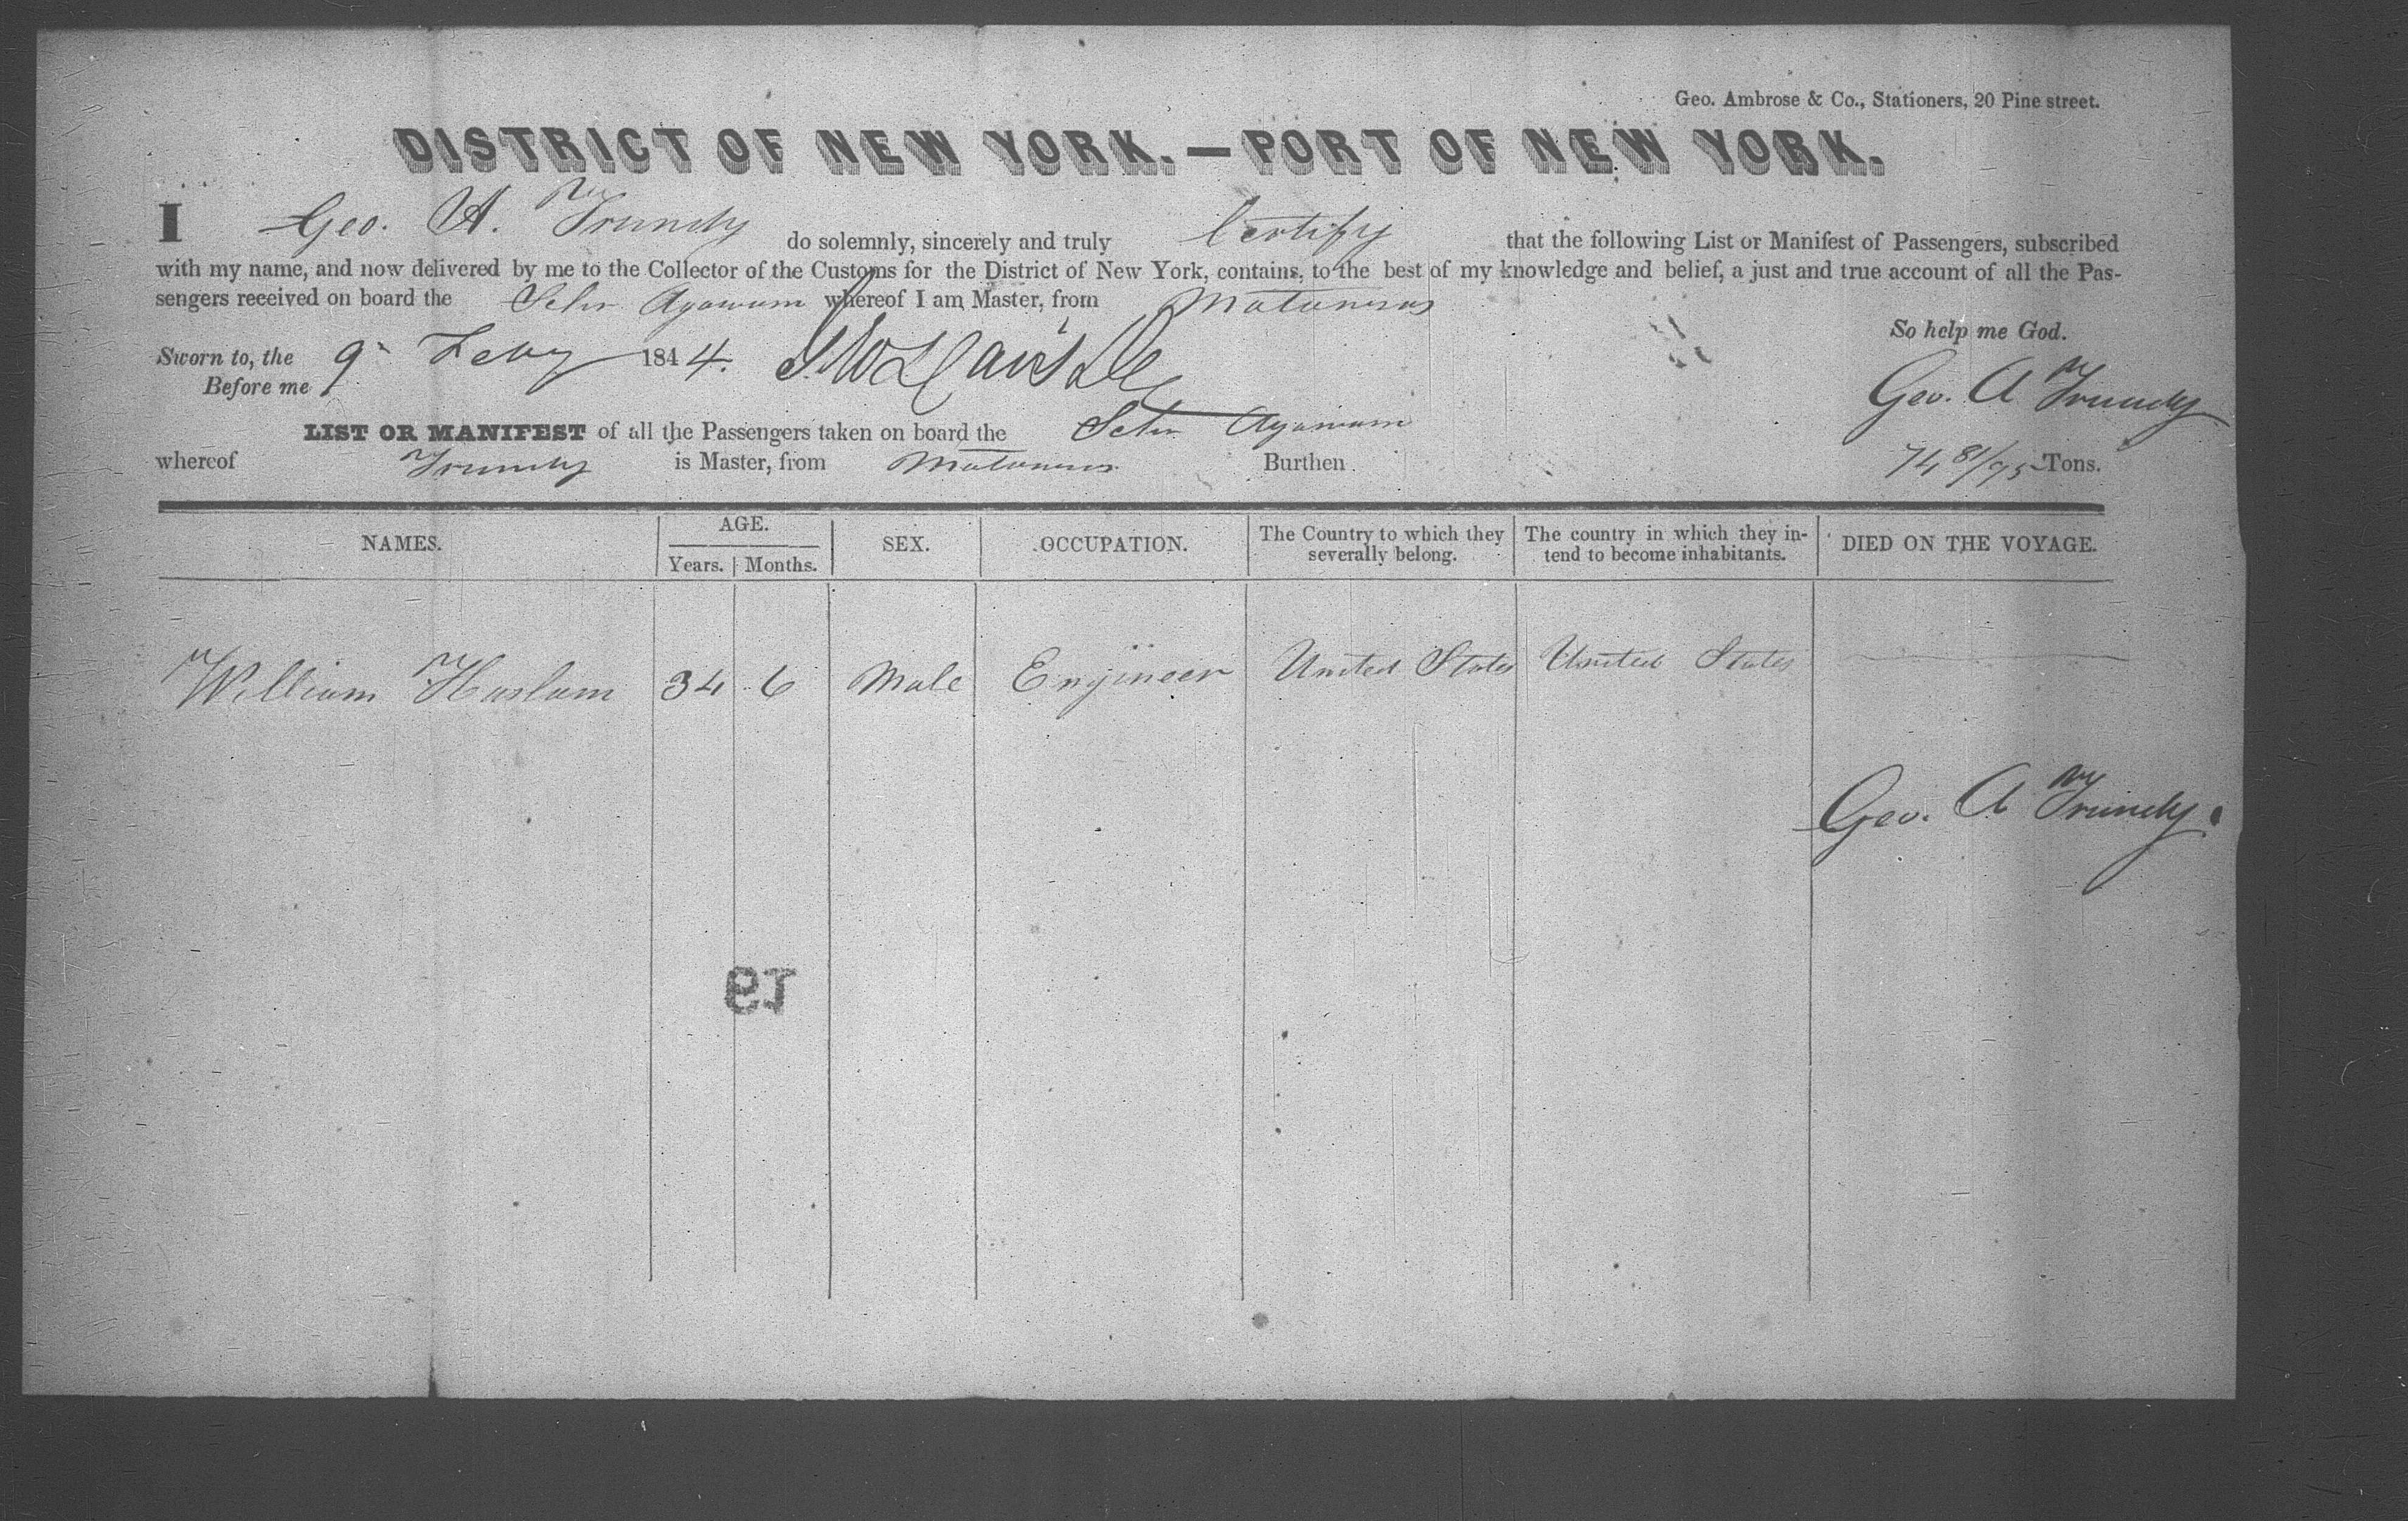 Geo. Ambrose & Co., Stationers, 20 Pine street.
DISTRICT OF NEW YORK.—PORT OF NEW YORK.
I Geo. A. Trundy do solemnly, sincerely and truly Certify that the following List or Manifest of Passengers, subscribed
with my name, and now delivered by me to the Collector of the Customs for the District of New York, contains, to the best of my knowledge and belief, a just and true account of all the Pas-
sengers received on board the Schr Agawam whereof I am Master, from Matanzas
So help me God.
Sworn to, the 9 Feby 1844.
Before me
Geo. A Trundy
LIST OR MANIFEST of all the Passengers taken on board the Schr Agawam
whereof Trundy is Master, from Matanzas Burthen 74 81/95 Tons.
NAMES. AGE. SEX. OCCUPATION. The Country to which they severally belong. The country in which they in- tend to become inhabitants. DIED ON THE VOYAGE.
Years. Months.
William Haslam 34 6 Male Engineer United States United States
Geo. A Trundy.
19